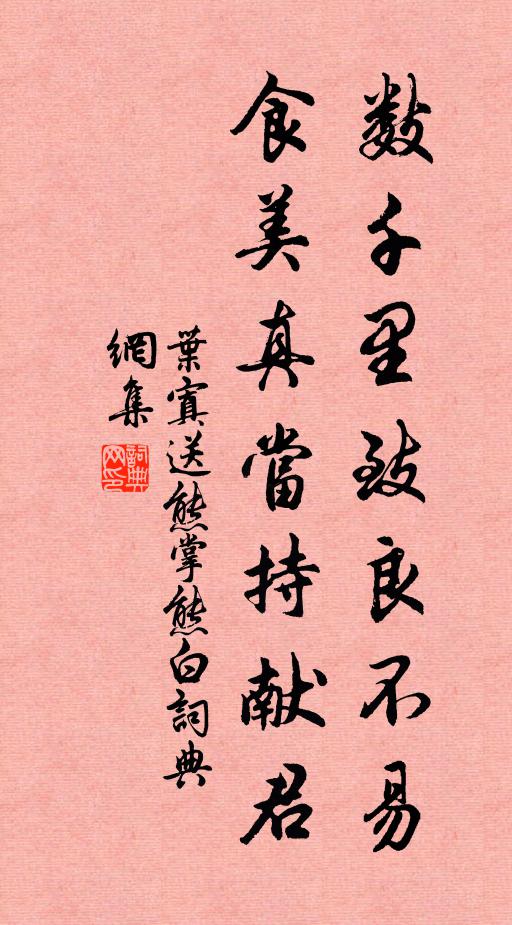 数千里致良不易
食美真當持献君
葉寘送熊掌熊白詞典
網集
詞典
网印